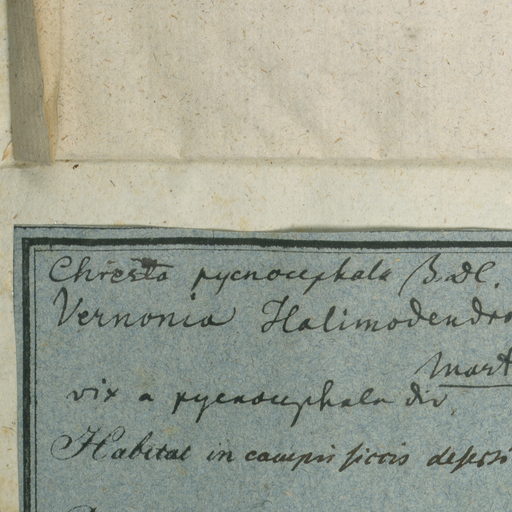 Chresta pycnocephala β. DC.
Vernonia Halimodendro
Mart
vix a pycnocephala div.
Habitat in campis siccis deserti